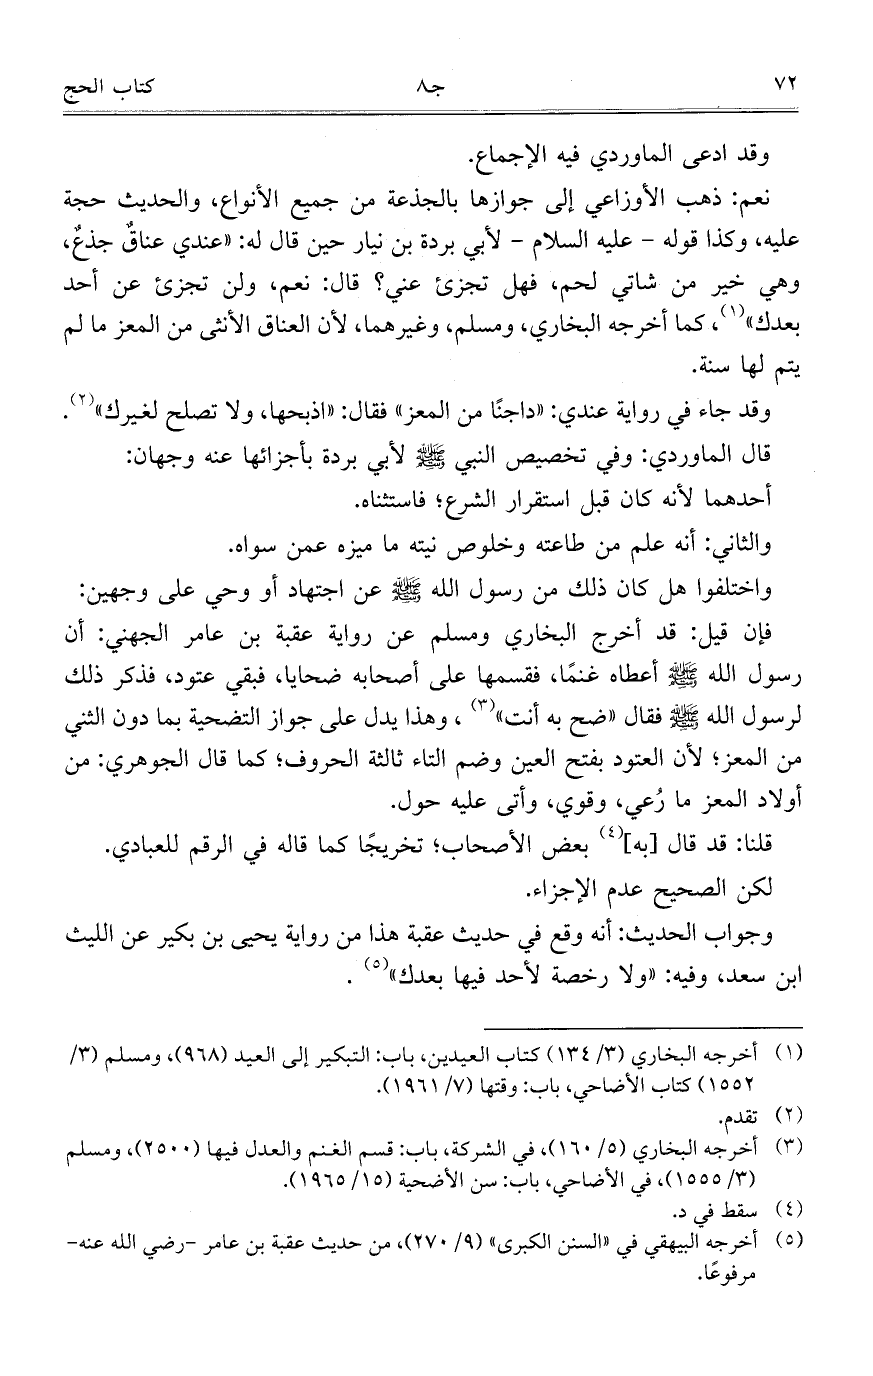 ٧٢ جـ٨ كتاب الحج
وقد ادعى الماوردي فيه الإجماع.
نعم: ذهب الأوزاعي إلى جوازها بالجذعة من جميع الأنواع، والحديث حجة
عليه، وكذا قوله – عليه السلام – لأبي بردة بن نيار حين قال له: «عندي عناقٌ جذعٌ،
وهي خير من شاتي لحم، فهل تجزئ عني؟ قال: نعم، ولن تجزئ عن أحد
بعدك»(١)، كما أخرجه البخاري، ومسلم، وغيرهما، لأن العناق الأنثى من المعز ما لم
يتم لها سنة.
وقد جاء في رواية عندي: «داجنًا من المعز» فقال: «اذبحها، ولا تصلح لغيرك»(٢).
قال الماوردي: وفي تخصيص النبي ﷺ لأبي بردة بأجزائها عنه وجهان:
أحدهما لأنه كان قبل استقرار الشرع؛ فاستثناه.
والثاني: أنه علم من طاعته وخلوص نيته ما ميزه عمن سواه.
واختلفوا هل كان ذلك من رسول الله ﷺ عن اجتهاد أو وحي على وجهين:
فإن قيل: قد أخرج البخاري ومسلم عن رواية عقبة بن عامر الجهني: أن
رسول الله ﷺ أعطاه غنمًا، فقسمها على أصحابه ضحايا، فبقي عتود، فذكر ذلك
لرسول الله ﷺ فقال «ضح به أنت»(٣) ، وهذا يدل على جواز التضحية بما دون الثني
من المعز؛ لأن العتود بفتح العين وضم التاء ثالثة الحروف؛ كما قال الجوهري: من
أولاد المعز ما رُعي، وقوي، وأتى عليه حول.
قلنا: قد قال [به](٤) بعض الأصحاب؛ تخريجًا كما قاله في الرقم للعبادي.
لكن الصحيح عدم الإجزاء.
وجواب الحديث: أنه وقع في حديث عقبة هذا من رواية يحيى بن بكير عن الليث
ابن سعد، وفيه: «ولا رخصة لأحد فيها بعدك»(٥) .
(١) أخرجه البخاري (٣/ ١٣٤) كتاب العيدين، باب: التبكير إلى العيد (٩٦٨)، ومسلم (٣/
١٥٥٢) كتاب الأضاحي، باب: وقتها (٧/ ١٩٦١).
(٢) تقدم.
(٣) أخرجه البخاري (٥/ ١٦٠)، في الشركة، باب: قسم الغنم والعدل فيها (٢٥٠٠)، ومسلم
(٣/ ١٥٥٥)، في الأضاحي، باب: سن الأضحية (١٥/ ١٩٦٥).
(٤) سقط في د.
(٥) أخرجه البيهقي في «السنن الكبرى» (٩/ ٢٧٠)، من حديث عقبة بن عامر -رضي الله عنه-
مرفوعًا.